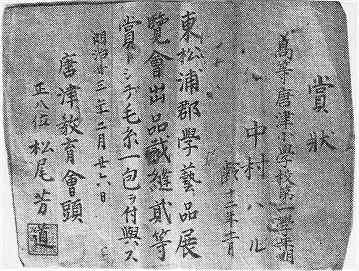 賞状
高等唐津小學校第一學年
中村ハル
齡十二年二月
東松浦郡學藝品展
覽會出品裁縫貳等
賞トシテ毛糸一包ヲ付與ス
明治廿三年二月廿六日
唐津教育會頭
正八位 松尾芳道